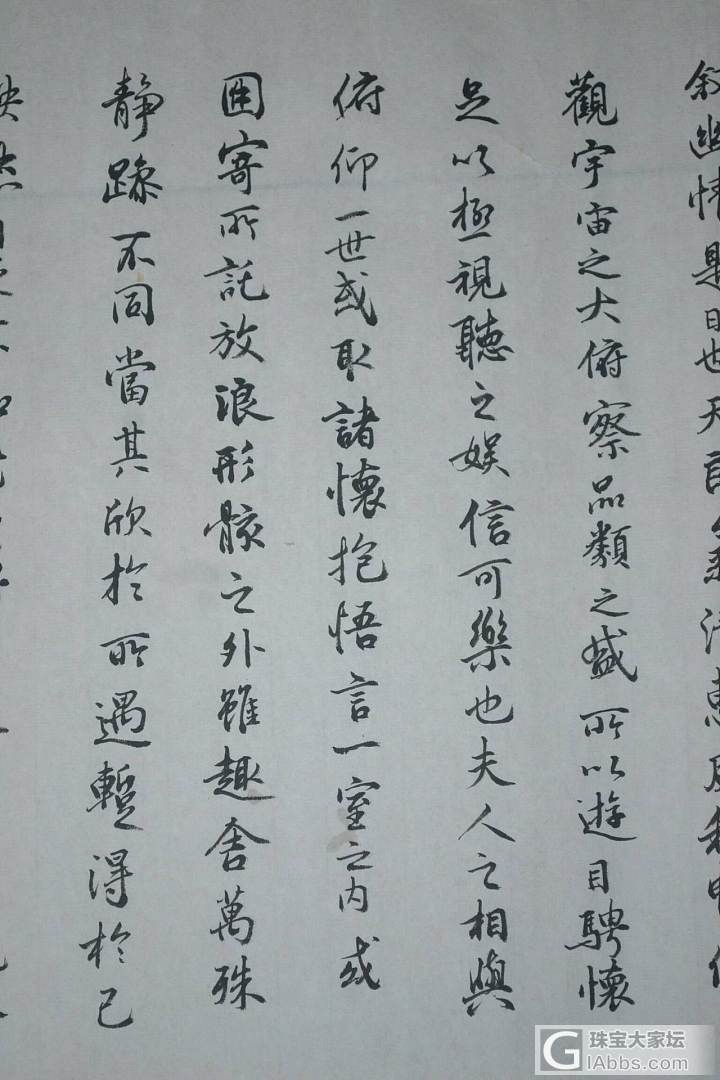 叙幽情是日也天朗氣清惠風和暢仰
觀宇宙之大俯察品類之盛所以遊目騁懷
足以極視聽之娛信可樂也夫人之相與
俯仰一世或取諸懷抱悟言一室之内或
因寄所託放浪形骸之外雖趣舍萬殊
靜躁不同當其欣於所遇暫得於己
然自足不知
珠宝大家坛
GIAbbs.com